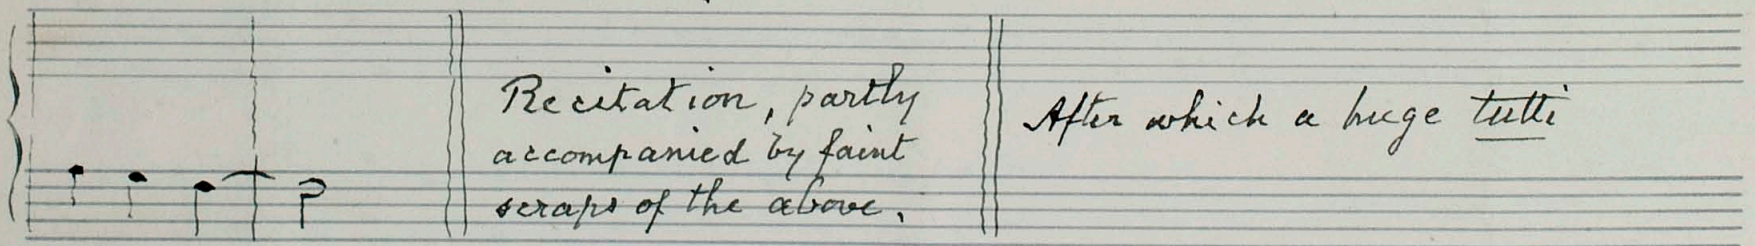 Recitation, partly
accompanied by faint
scraps of the above.
After which a huge tutti